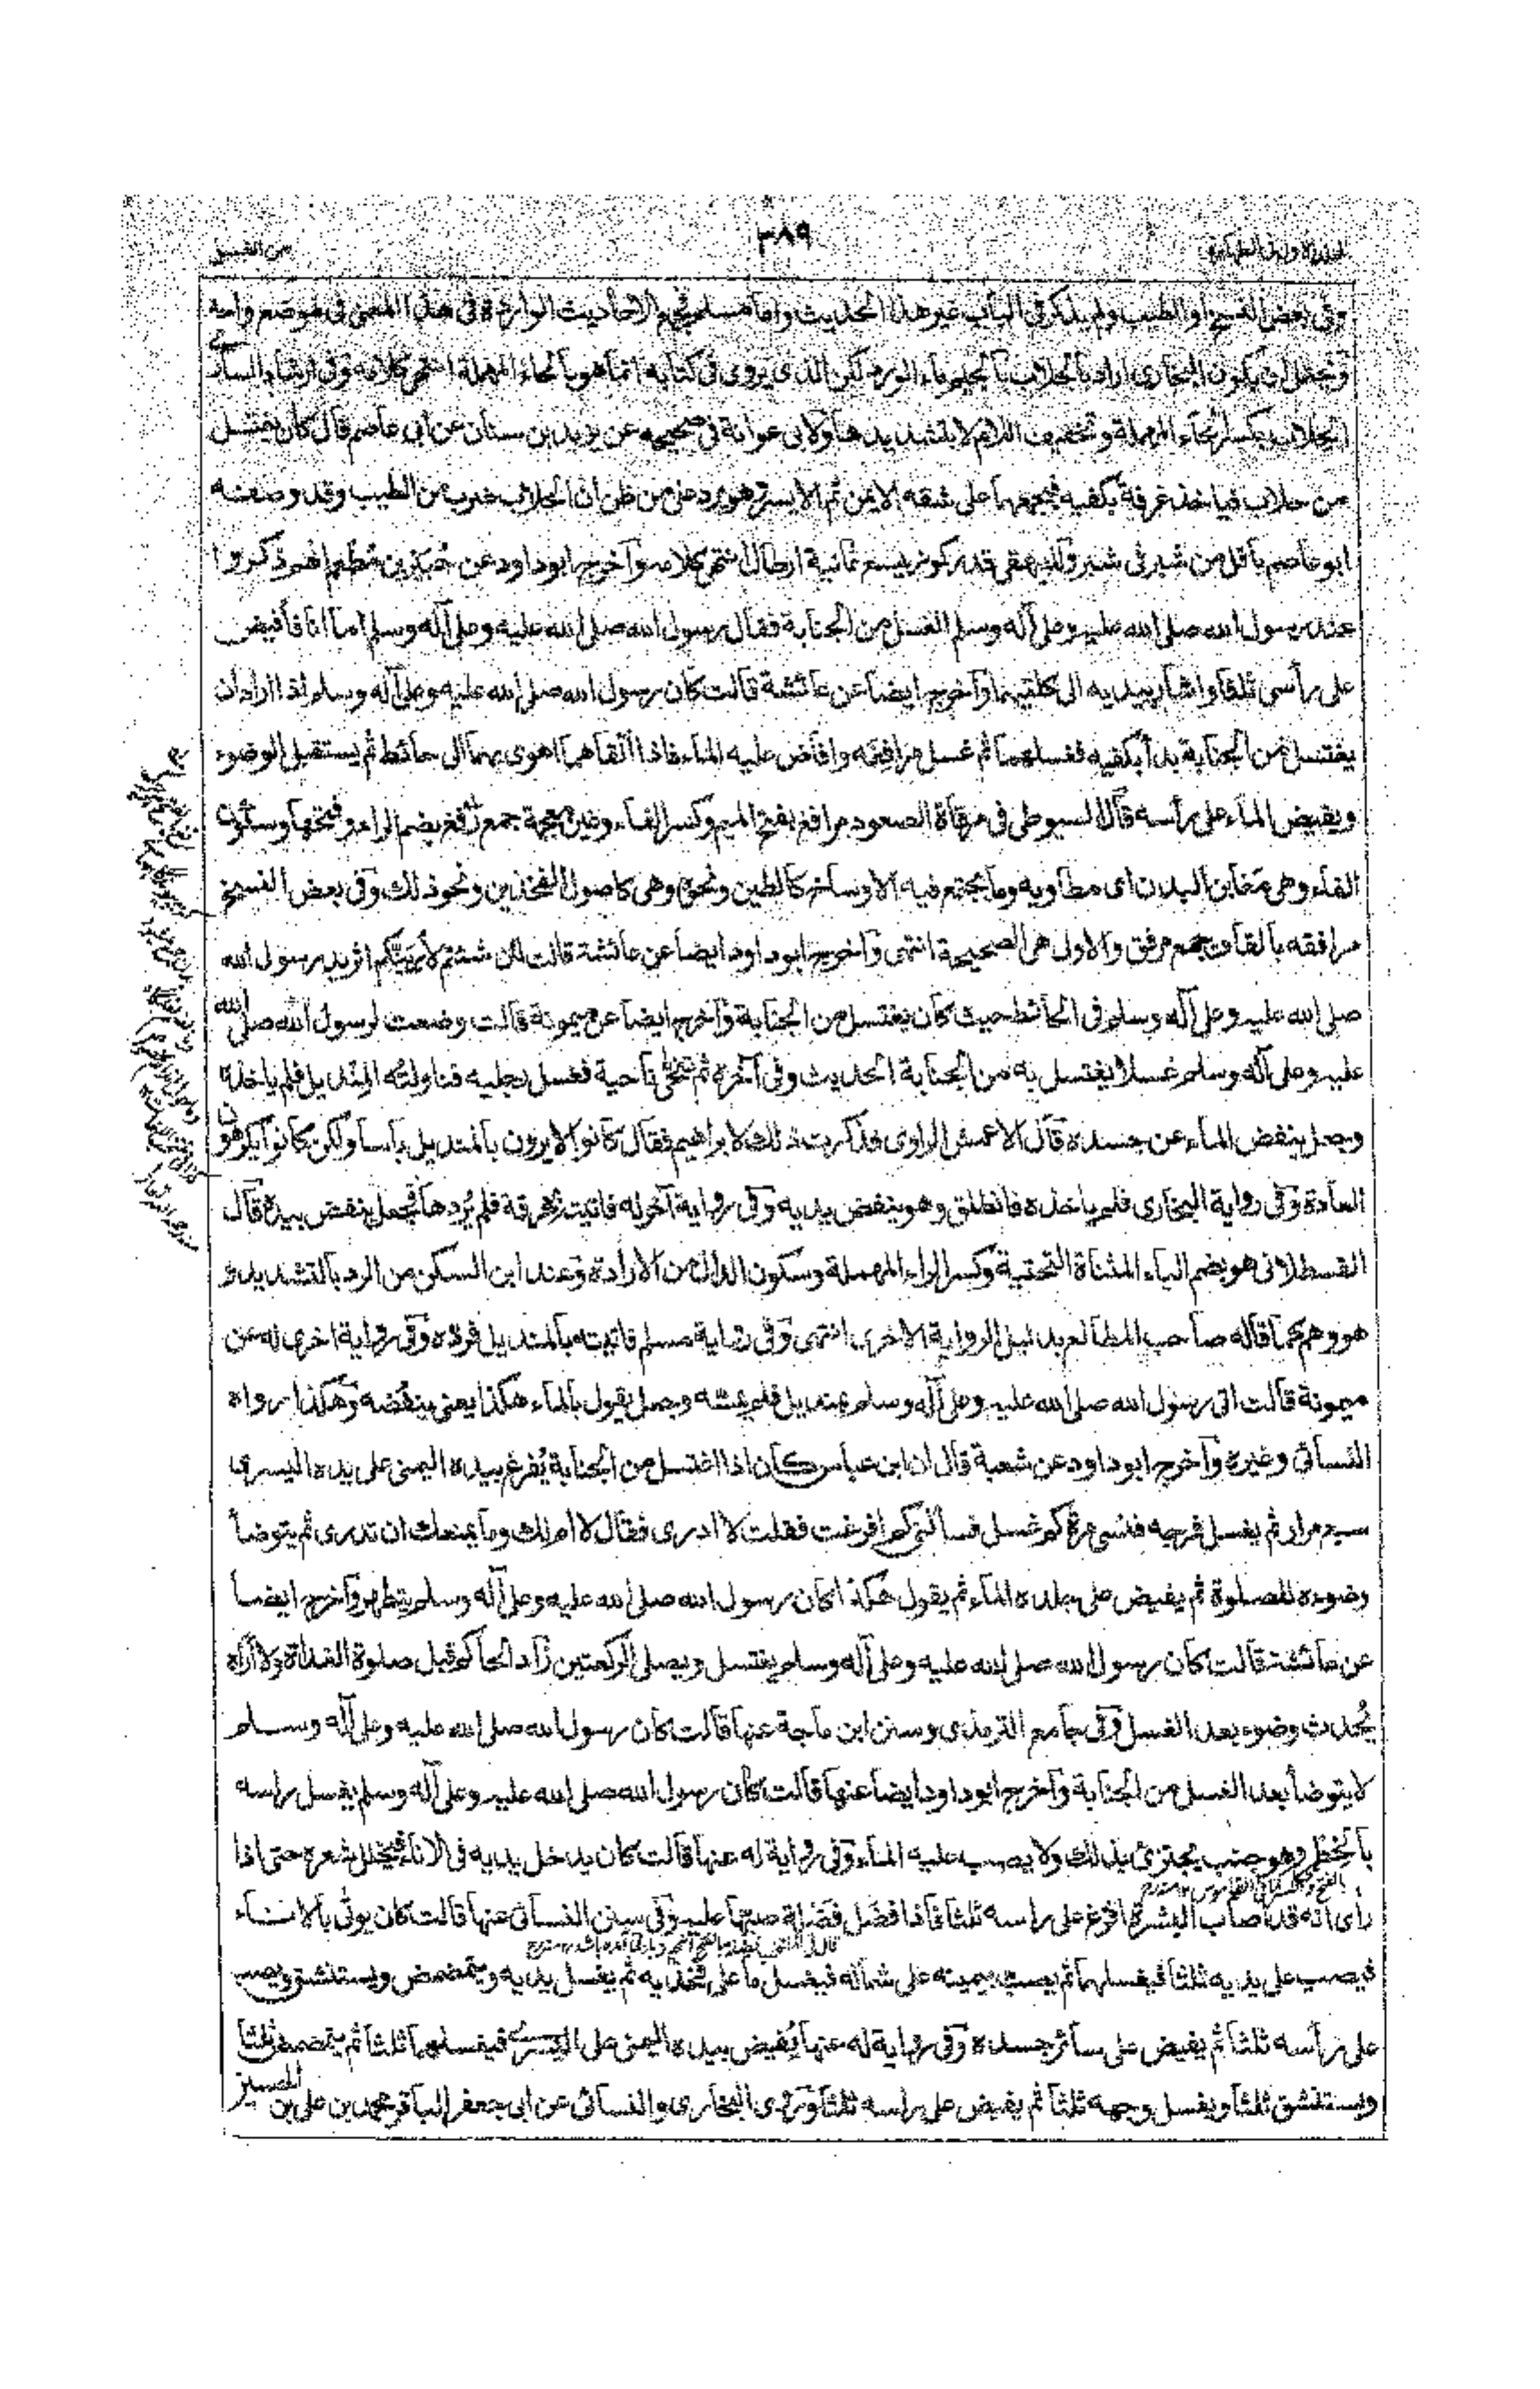 ٣٨٩
وفى بعض النسخ او الطيب ولم يذكر فى الباب غير هذا الحديث واما مسلم فجمع الاحاديث الواردة فى هذا المعنى فى موضع واحد
ويحتمل ان يكون البخارى اراد بالجلاب بالجيم ماء الورد لكن الذى يروى فى كتابه انما هو بالحاء المهملة انتهى كلامه وفى ارشاد السارى
الحلاب بكسر الحاء المهملة وتخفيف اللام لا بتشديدها ولابى عوانة فى صحيحه عن يزيد بن سنان عن ابى عاصم قال كان يغتسل
من حلاب فياخذ غرفة بكفيه فيجعلها على شقه الايمن ثم الايسر وهو يرد على من ظن ان الحلاب ضرب من الطيب وقد وصفه
ابو عاصم باقل من شبر فى شبر وللبيهقى قدر كوز يسع ثمانية ارطال انتهى كلامه وآخرج ابو داود عن جبير بن مطعم انهم ذكروا
عند رسول الله صلى الله عليه وعلى آله وسلم الغسل من الجنابة فقال رسول الله صلى الله عليه وعلى آله وسلم اما انا فأفيض
على رأسى ثلثا واشار بيديه الى كلتيهما وآخرج ايضا عن عائشة قالت كان رسول الله صلى الله عليه وعلى آله وسلم اذا اراد ان
يغتسل من الجنابة بدأ بكفيه فغسلهما ثم غسل مرافغه وافاض عليه الماء فاذا انقاهما اهوى بهما الى حائط ثم يستقبل الوضوء
ويفيض الماء على رأسه قال السيوطى فى مرقاة الصعود مرافغ بفتح الميم وكسر الفاء وغين معجمة جمع رفغ بضم الراء وفتحها وسكون
الفاء وهى مغابن البدن اى مطاويه وما يجتمع فيه الاوساخ كالطين ونحوه وهى كاصول الفخذين ونحو ذلك وفى بعض النسخ
مرافقه بالقاف جمع مرفق والاولى هى الصحيحة انتهى وآخرج ابو داود ايضا عن عائشة قالت لئن شئتم لأرينكم اثر يد رسول الله
صلى الله عليه وعلى آله وسلم فى الحائط حيث كان يغتسل من الجنابة وآخرج ايضا عن ميمونة قالت وضعت لرسول الله صلى الله
عليه وعلى آله وسلم غسلا يغتسل به من الجنابة الحديث وفى آخره ثم تنحى ناحية فغسل رجليه فناولته المنديل فلم ياخذه
وجعل ينفض الماء عن جسده قال الاعمش الراوى فذكرت ذلك لابراهيم فقال كانوا لا يرون بالمنديل بأسا ولكن كانوا يكرهون
العادة وفى رواية البخارى فلم ياخذه فانطلق وهو ينفض يديه وفى رواية آخر له فاتيته بخرقة فلم يردها فجعل ينفض بيده قال
القسطلانى هو بضم الياء المثناة التحتية وكسر الراء المهملة وسكون الدال من الارادة وعند ابن السكن من الرد بالتشديد و
هو وهم كما قاله صاحب المطالع بدليل الرواية الاخرى انتهى وفى رواية مسلم فاتيته بالمنديل فرده وفى رواية اخرى له عن
ميمونة قالت اتى رسول الله صلى الله عليه وعلى آله وسلم بمنديل فلم يمسه وجعل يقول بالماء هكذا يعنى ينفضه وهكذا رواه
النسائى وغيره وآخرج ابو داود عن شعبة قال ان ابن عباس كان اذا اغتسل من الجنابة يفرغ بيده اليمنى على يده اليسرى
سبع مرار ثم يغسل فرجه فنسى مرة كم غسل فسألنى كم افرغت فقلت لا ادرى فقال لا ام لك وما يمنعك ان تدرى ثم يتوضأ
وضوءه للصلوة ثم يفيض على جلده الماء ثم يقول هكذا كان رسول الله صلى الله عليه وعلى آله وسلم يتطهر وآخرج ايضا
عن عائشة قالت كان رسول الله صلى الله عليه وعلى آله وسلم يغتسل ويصلى الركعتين زاد الحاكم قبل صلوة الغداة ولا اراه
يحدث وضوء بعد الغسل وفى جامع الترمذى وسنن ابن ماجة عنها قالت كان رسول الله صلى الله عليه وعلى آله وسلم
لا يتوضأ بعد الغسل من الجنابة وآخرج ابو داود ايضا عنها قالت كان رسول الله صلى الله عليه وعلى آله وسلم يغسل راسه
بالخطمى وهو جنب يجتزئ بذلك ولا يصب عليه الماء وفى رواية له عنها قالت كان يدخل يديه فى الاناء فيخلل شعره حتى اذا
رأى انه قد اصاب البشرة افرغ على راسه ثلثا فاذا فضل فضلة صبها عليه وفى سنن النسائى عنها قالت كان يوتى بالاناء
فيصب على يديه ثلثا فيغسلهما ثم يصب بيمينه على شماله فيغسل ما على فخذيه ثم يغسل يديه ويتمضمض ويستنشق ويصب
على رأسه ثلثا ثم يفيض على سائر جسده وفى رواية له عنها يفيض بيده اليمنى على اليسرى فيغسلهما ثلثا ثم يتمضمض ثلثا
ويستنشق ثلثا ويغسل وجهه ثلثا ثم يفيض على راسه ثلثا وروى البخارى والنسائى عن ابى جعفر الباقر محمد بن على بن الحسين